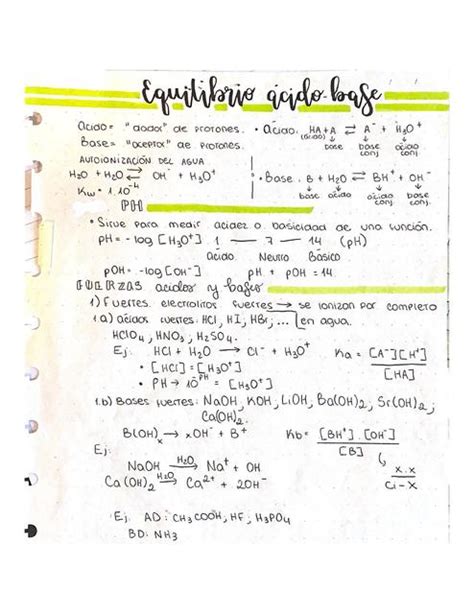 Equilibrio ácido-base
Ácido = "dador" de protones. • Ácido: HA + A ⇌ A⁻ + H₃O⁺
(ácido) ↓ base ↓ base conj ↓ ácido conj.
Base = "aceptor" de protones.
AUTOIONIZACIÓN DEL AGUA
H₂O + H₂O ⇌ OH⁻ + H₃O⁺ • Base: B + H₂O ⇌ BH⁺ + OH⁻
Kw = 1.10⁻⁴ ↓ base ↓ ácido ↓ ácido conj. ↓ base conj.
PH
• Sirve para medir acidez o basicidad de una función.
pH = - log [H₃O⁺] 1 — 7 — 14 (pH)
Ácido Neutro Básico
pOH = -log [OH⁻] pH + pOH = 14.
FUERZAS ácidos y bases
1) Fuertes. electrolitos fuertes → se ionizan por completo
1.a) ácidos fuertes: HCl, HI, HBr, ... en agua.
HClO₄, HNO₃, H₂SO₄.
Ej: HCl + H₂O → Cl⁻ + H₃O⁺ Ka = [A⁻][H⁺]
• [HCl] = [H₃O⁺] [HA]
• PH → 10⁻ᵖᴴ = [H₃O⁺]
1.b) Bases fuertes: NaOH, KOH, LiOH, Ba(OH)₂, Sr(OH)₂,
Ca(OH)₂.
B(OH)ₓ → xOH⁻ + B⁺ Kb = [BH⁺].[OH⁻]
Ej: [B]
NaOH H₂O→ Na⁺ + OH x.x
Ca(OH)₂ H₂O→ Ca²⁺ + 2OH⁻ Ci-x
Ej. AD: CH₃COOH, HF, H₃PO₄
BD: NH₃